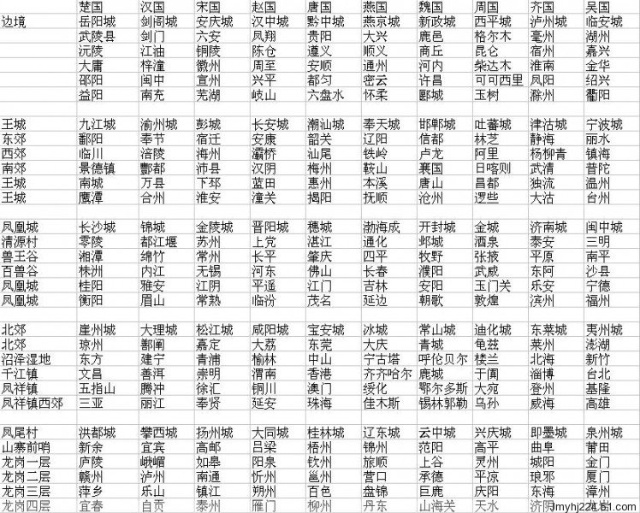 楚国 汉国 宋国 赵国 唐国 燕国 魏国 周国 齐国 吴国
边境 岳阳城 剑阁城 安庆城 汉中城 黔中城 燕京城 新政城 西平城 泸州城 临安城
武陵县 剑门 六安 凤翔 贵阳 大兴 鹿邑 格尔木 亳州 湖州
沅陵 江油 铜陵 陈仓 遵义 顺义 商丘 昆仑 宿州 嘉兴
大庸 梓潼 徽州 周至 安顺 通州 河内 柴达木 淮南 金华
邵阳 阆中 宣州 兴平 都匀 密云 许昌 可可西里 凤阳 绍兴
益阳 南充 芜湖 岐山 六盘水 怀柔 郾城 玉树 滁州 衢阳
王城 九江城 渝州城 彭城 长安城 潮汕城 奉天城 邯郸城 吐蕃城 津沽城 宁波城
东郊 鄱阳 奉节 宿迁 安康 韶关 辽阳 信都 林芝 静海 丽水
西郊 临川 涪陵 海州 灞桥 汕尾 铁岭 卢龙 阿里 杨柳青 镇海
南郊 景德镇 酆都 沛县 汉阴 梅州 鞍山 襄国 日喀则 武清 普陀
王城 南城 万县 下邳 蓝田 惠州 本溪 唐山 昌都 独流 温州
王城 鹰潭 合州 淮安 潼关 揭阳 抚顺 沧州 逻些 大沽 台州
凤凰城 长沙城 锦城 金陵城 晋阳城 穗城 渤海城 开封城 金城 济南城 闽中城
清源村 零陵 都江堰 苏州 上党 湛江 通化 邺城 酒泉 泰安 三明
兽王谷 湘潭 绵竹 常州 长平 肇庆 四平 牧野 张掖 平原 南平
百兽谷 株洲 内江 无锡 河东 佛山 长春 濮阳 武威 东阿 沙县
凤凰城 桂阳 雅安 江阴 平遥 江门 吉林 安阳 玉门关 乐安 宁德
凤凰城 衡阳 眉山 常熟 临汾 茂名 延边 朝歌 敦煌 滨州 福州
北郊 崖州城 大理城 松江城 咸阳城 宝安城 冰城 常山城 迪化城 东莱城 夷州城
北郊 琼州 鄯阐 嘉定 大荔 东莞 大庆 真定 龟兹 莱州 澎湖
沼泽湿地 东方 建宁 青浦 榆林 中山 宁古塔 呼伦贝尔 楼兰 北海 新竹
千江镇 文昌 善洱 崇明 渭南 香港 齐齐哈尔 鹿城 于阗 淄博 台北
凤祥镇 五指山 腾冲 徐汇 铜川 澳门 绥化 鄂尔多斯 大宛 登州 基隆
凤祥镇西郊 三亚 丽江 奉贤 延安 珠海 佳木斯 锡林郭勒 乌孙 威海 高雄
凤尾村 洪都城 攀西城 扬州城 大同城 桂林城 辽东城 云中城 兴庆城 即墨城 泉州城
山寨前哨 新余 宜宾 高邮 吕梁 梧州 锦州 范阳 高平 曲阜 莆田
龙岗一层 庐陵 峨嵋 如皋 阳泉 钦州 旅顺 上谷 灵州 城阳 金门
龙岗二层 赣州 泸州 南通 忻州 邕州 营口 承德 平凉 琅琊 厦门
龙岗三层 萍乡 乐山 镇江 朔州 百色 盘锦 巨鹿 庆阳 东海 漳州
龙岗四层 宜春 自贡 泰州 雁门 柳州 丹东 山海关 天水 济阴
myhj224.61.com